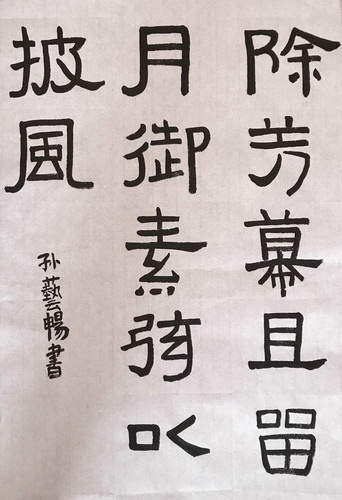 除芳幕且留
月御素弦以
披風
孙藝暢書